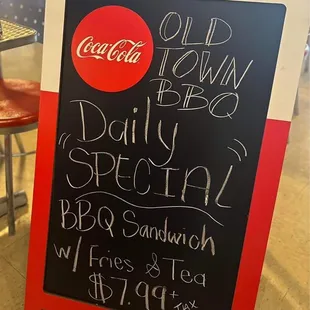 Coca-Cola
OLD
TOWN
BBQ
Daily
SPECIAL
BBQ Sandwich
w/ Fries & Tea
$7.99 + TAX